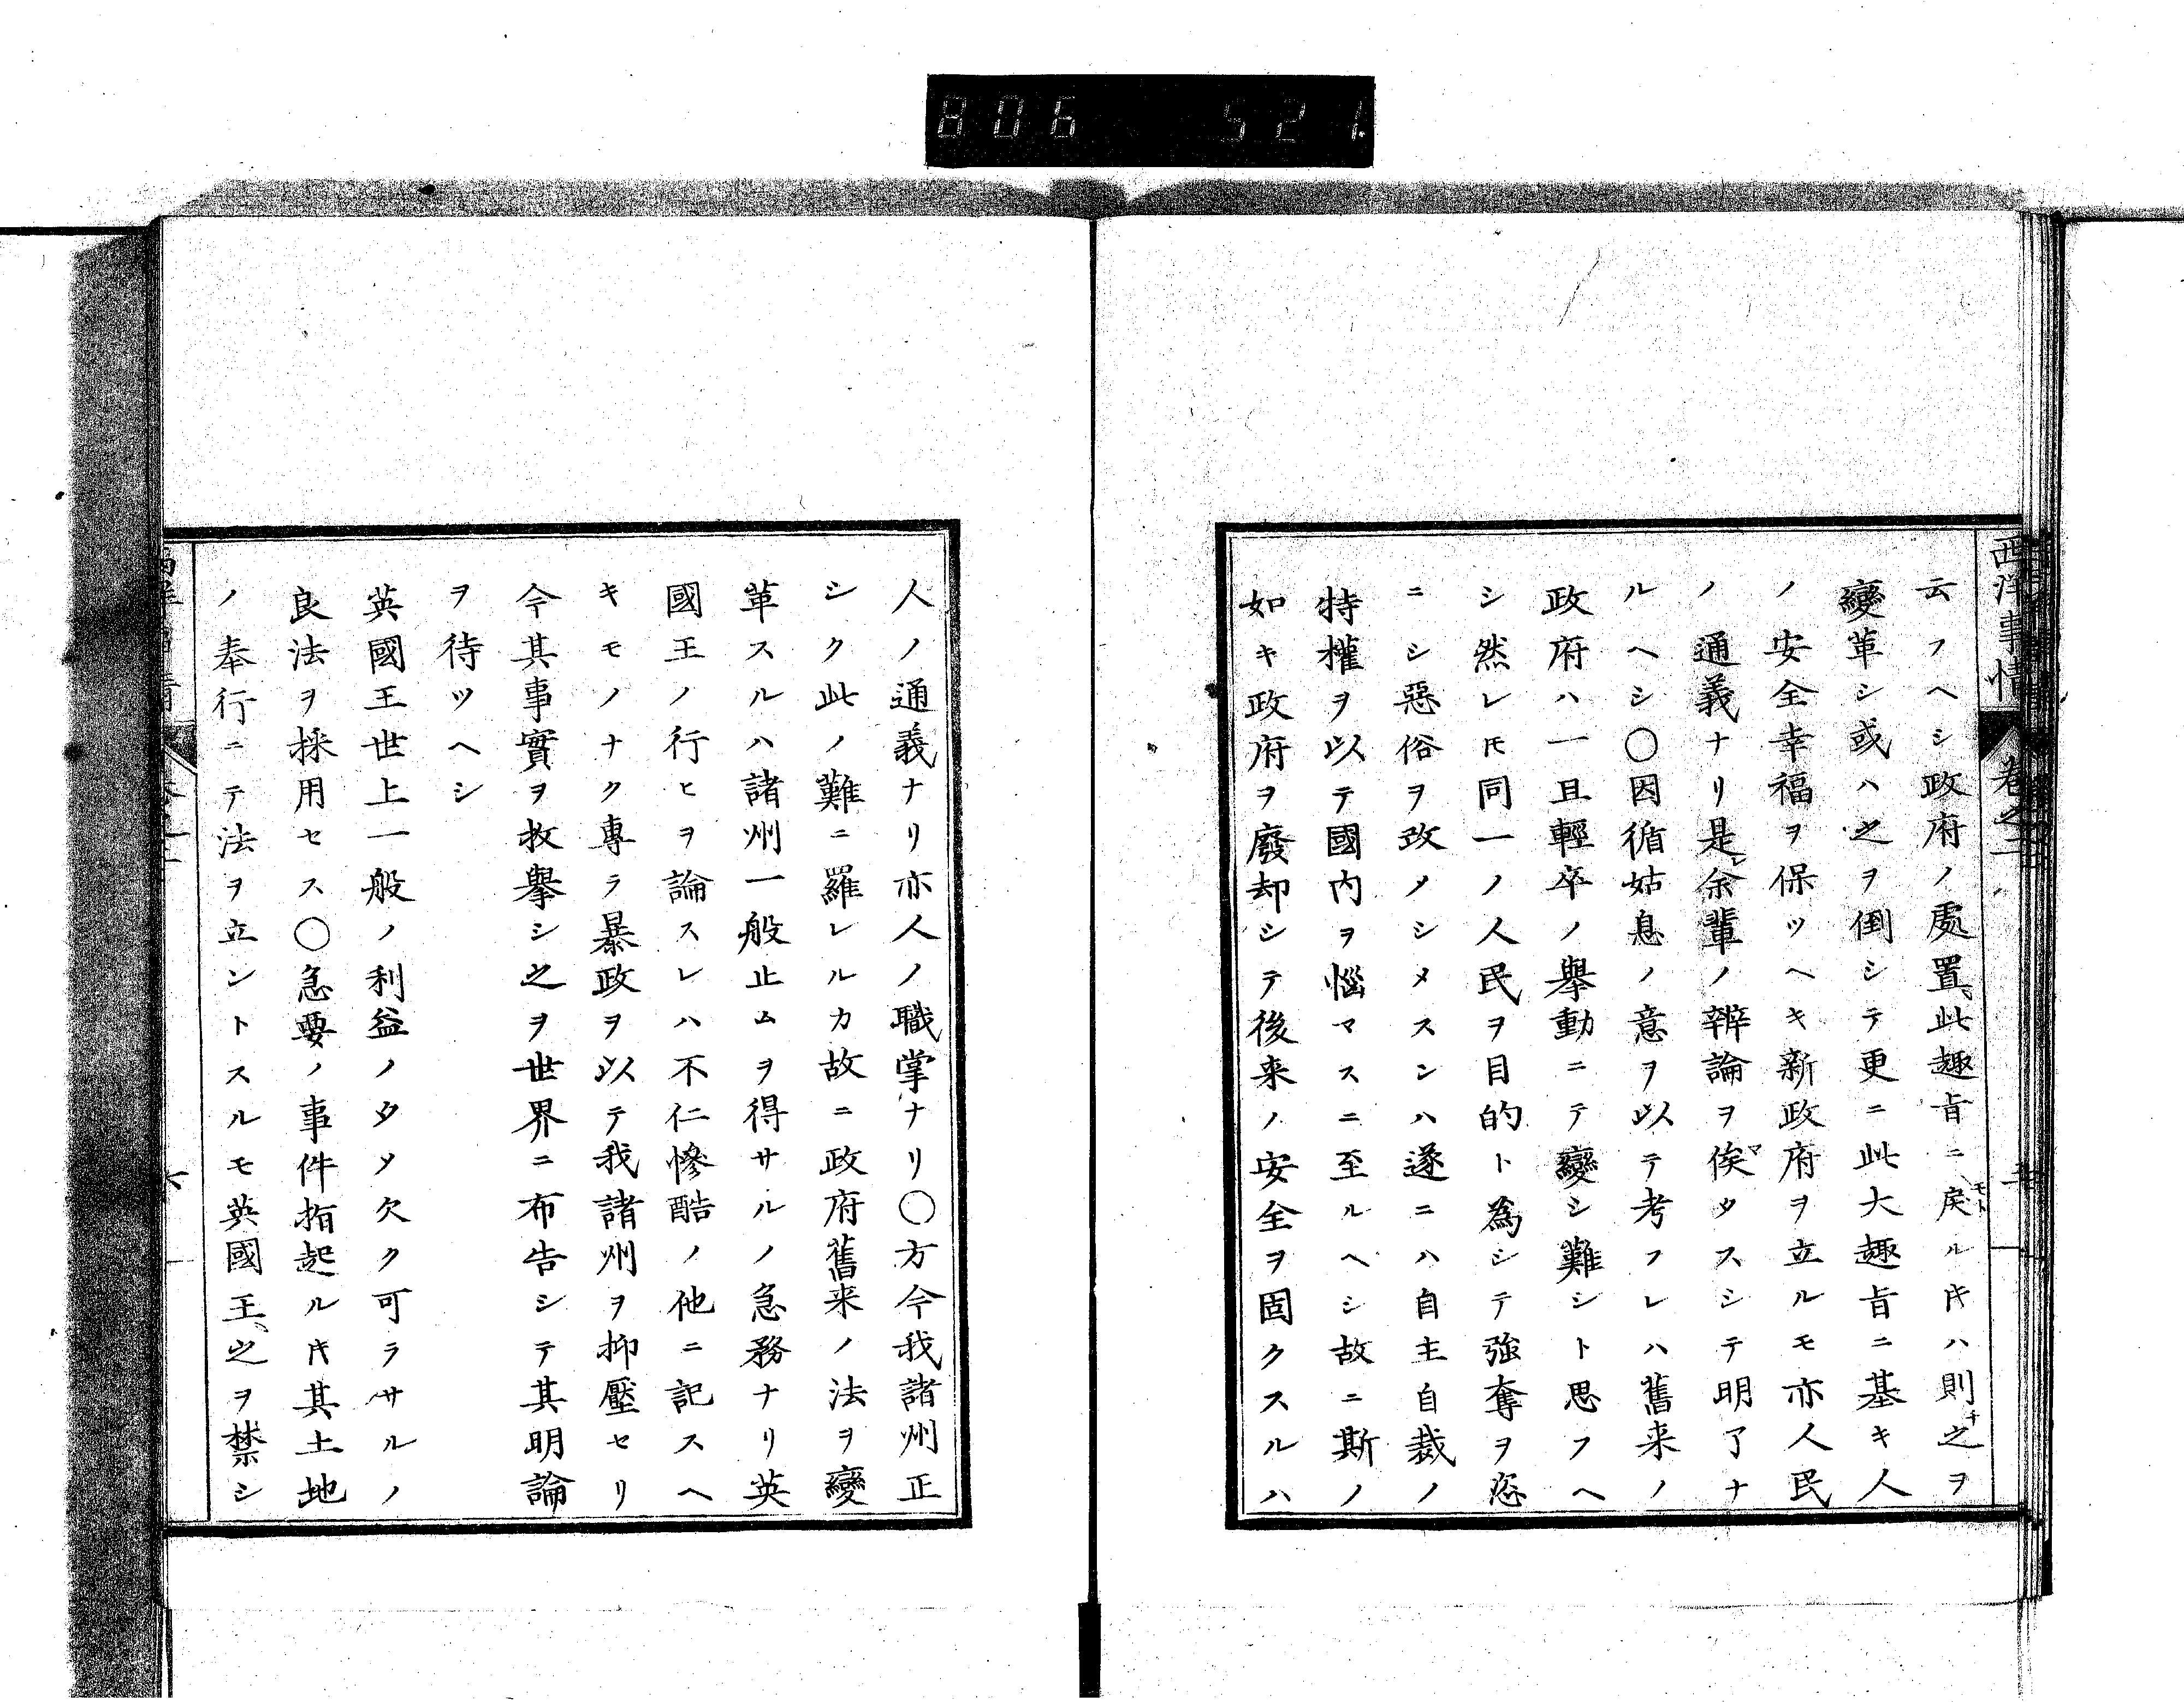 806 521.
西洋事情 卷之二 五
云フヘシ政府ノ處置、此趣旨ニ戻ルトキハ則チ之ヲ
變革シ或ハ之ヲ倒シテ更ニ此大趣旨ニ基キ人
ノ安全幸福ヲ保ツヘキ新政府ヲ立ルモ亦人民
ノ通義ナリ是レ余輩ノ辨論ヲ俟タスシテ明了ナ
ルヘシ〇因循姑息ノ意ヲ以テ考フレハ舊来ノ
政府ハ一旦輕卒ノ舉動ニテ變シ難シト思フヘ
シ然レ𪜈同一ノ人民ヲ目的ト為シテ強奪ヲ恣
ニシ惡俗ヲ改メシメスンハ遂ニハ自主自裁ノ
特權ヲ以テ國内ヲ惱マスニ至ルヘシ故ニ斯ノ
如キ政府ヲ廢却シテ後来ノ安全ヲ固クスルハ
人ノ通義ナリ亦人ノ職掌ナリ〇方今我諸州正
シク此ノ難ニ罹レルカ故ニ政府舊来ノ法ヲ變
革スルハ諸州一般止ムヲ得サルノ急務ナリ英
國王ノ行ヒヲ論スレハ不仁慘酷ノ他ニ記スヘ
キモノナク專ラ暴政ヲ以テ我諸州ヲ抑壓セリ
今其事實ヲ枚擧シ之ヲ世界ニ布告シテ其明論
ヲ待ツヘシ
英國王世上一般ノ利益ノタメ欠ク可ラサルノ
良法ヲ採用セス〇急要ノ事件指起ルトキ其土地
ノ奉行ニテ法ヲ立ントスルモ英國王、之ヲ禁シ